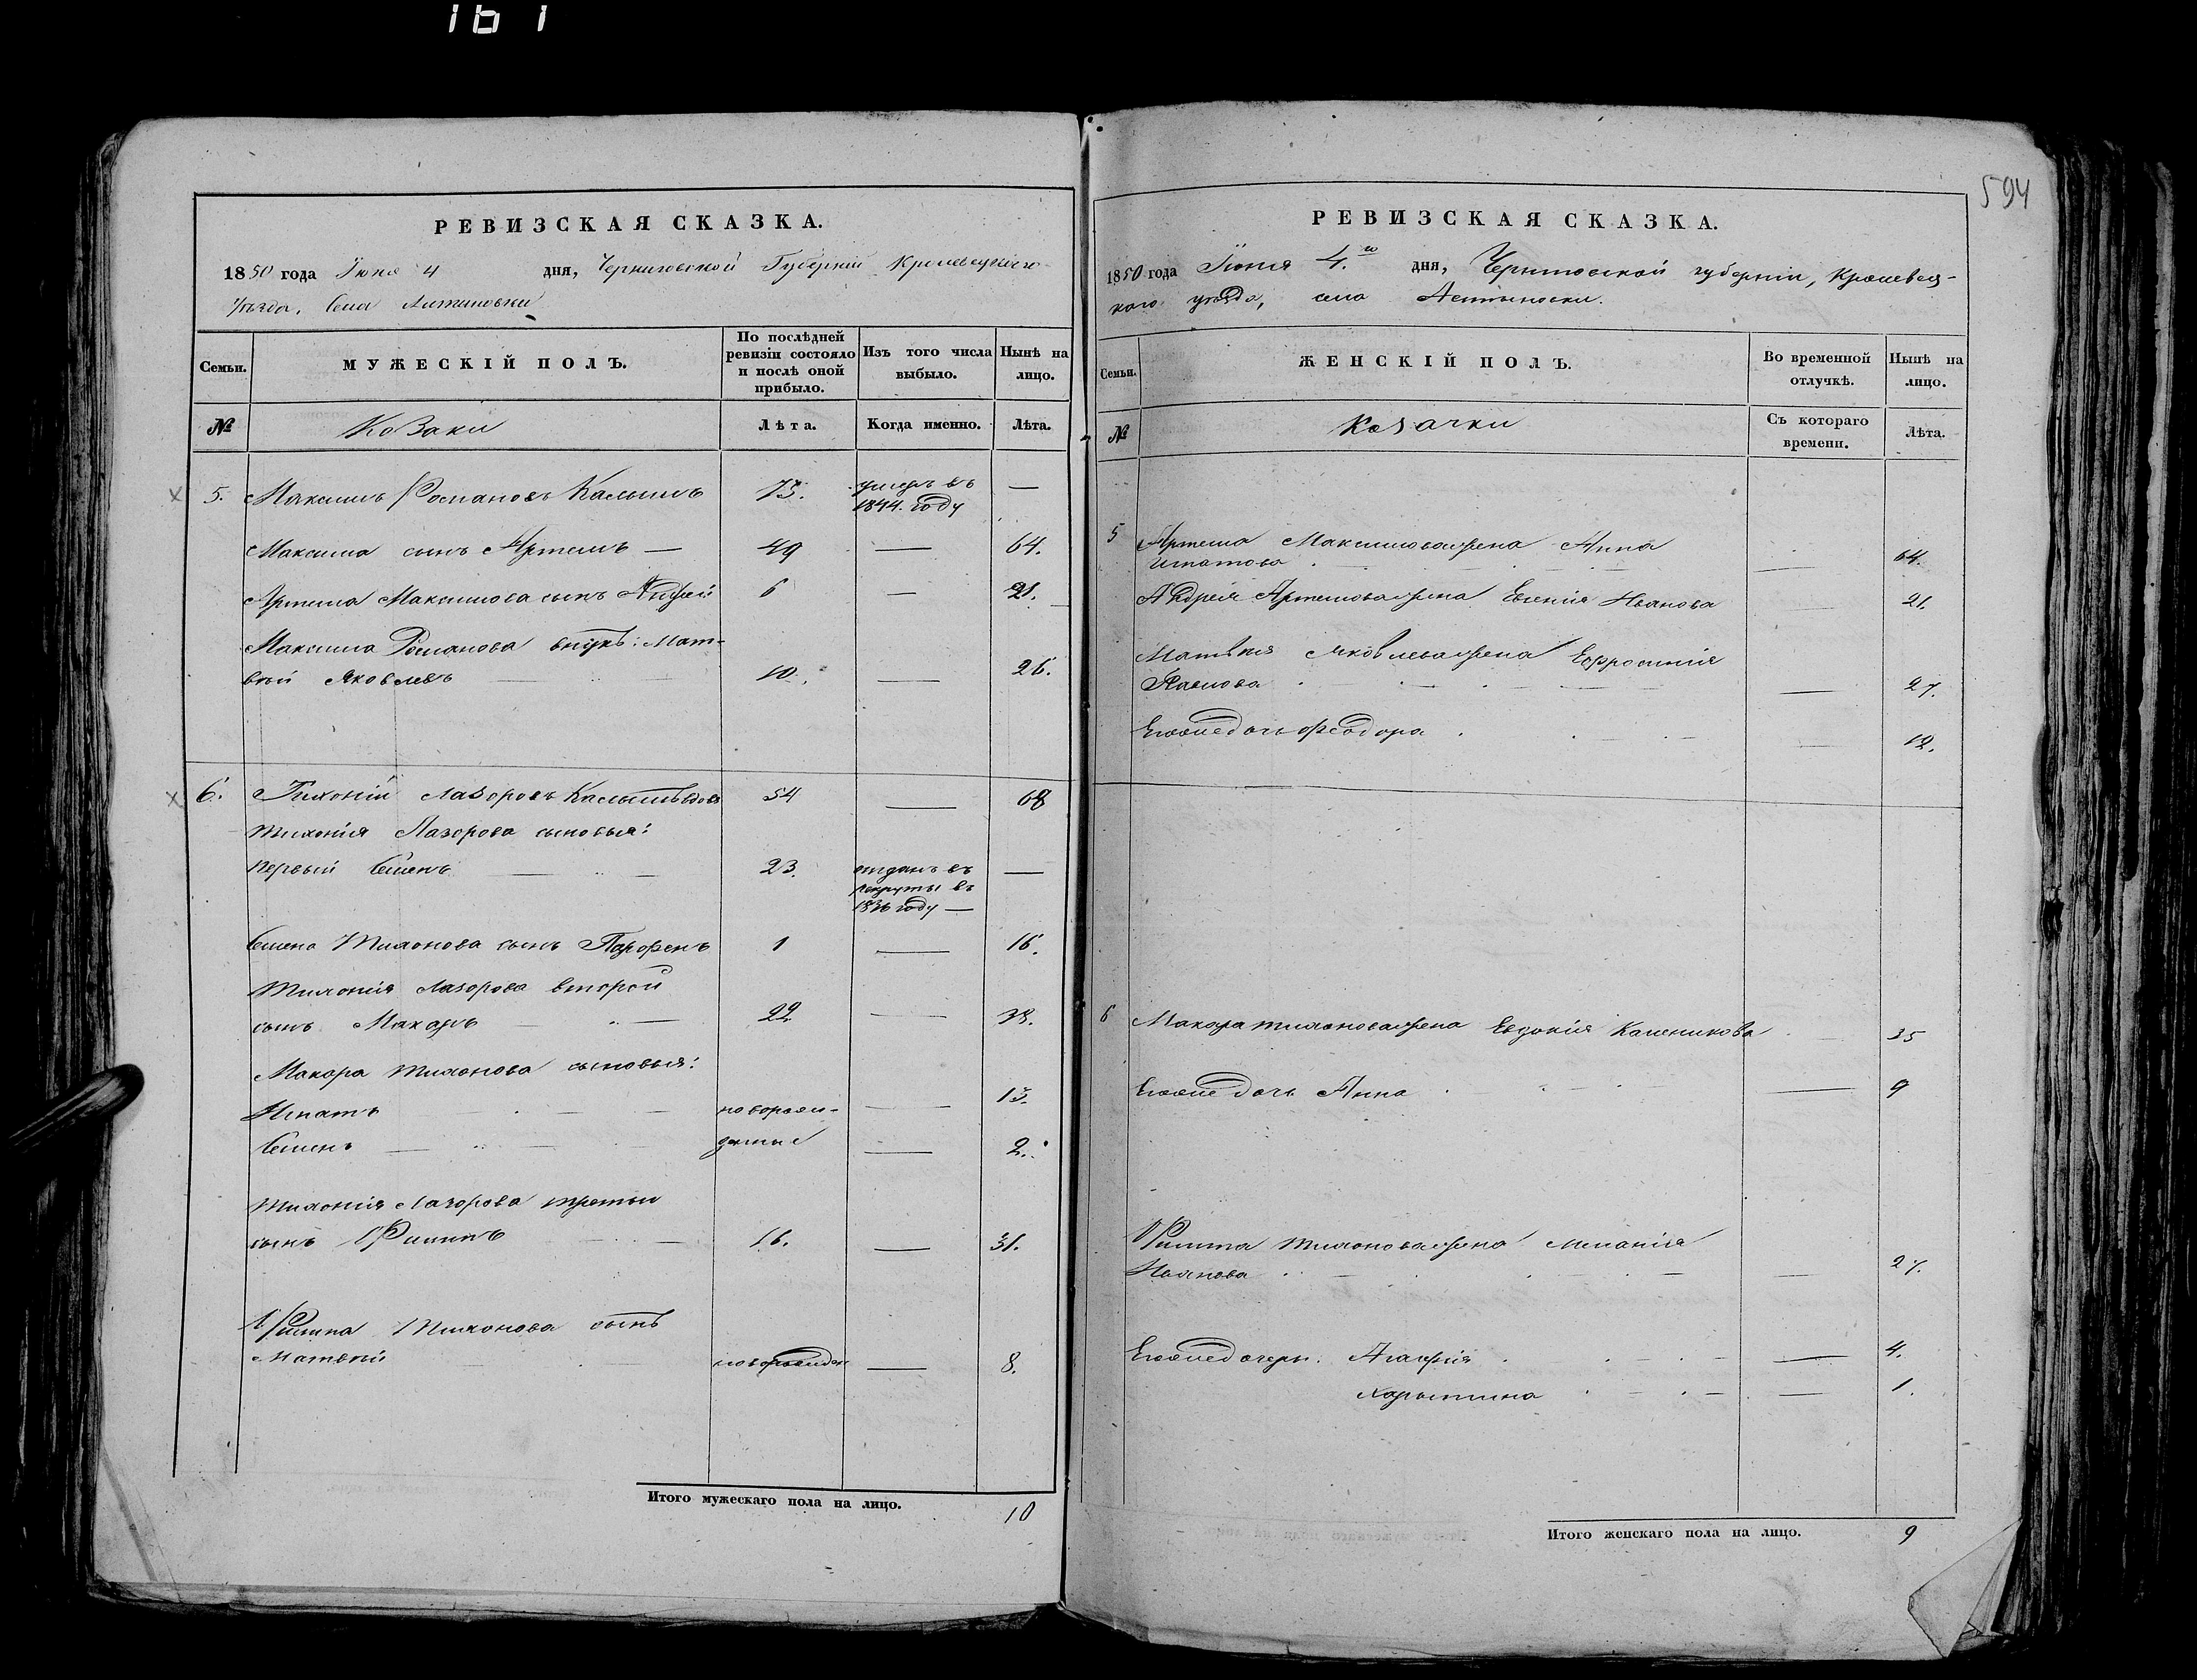 161
594
РЕВИЗСКАЯ СКАЗКА.
1850 года Июня 4 дня, Черниговской Губерніи Кролевецкаго
Уѣзда, Села Литвиновки
Семьи.
МУЖЕСКІЙ ПОЛЪ.
По послѣдней ревизіи состояло и послѣ оной прибыло.
Изъ того числа выбыло.
Нынѣ на лицо.
№
Козаки
Лѣта.
Когда именно.
Лѣта.
5. Максимъ Романовъ 73. умеръ въ —
1844. году
Максима сынъ Артемъ — 49 — 64.
Артема Максимова сынъ Андрей 6 — 21.
Максима Романова внукъ: Мат-
вѣй Яковлевъ 10. — 26.
6. Тихоній Лазоровъ 54 — 68
Тихонія Лазорова сыновья:
первый Семенъ 23. отданъ въ —
рекруты въ
1836 году —
Семена Тихонова сынъ Парфенъ 1 — 16.
Тихонія Лазорова второй
сынъ Макаръ 22. — 38.
Макара Тихонова сыновья:
Игнатъ новорож- — 13.
Семенъ денные — 2.
Тихонія Лазорова третьи
сынъ Филипъ 16. — 31.
Филипа Тихонова сынъ
Матвѣй новорожден — 8.
Итого мужескаго пола на лицо. 10
РЕВИЗСКАЯ СКАЗКА.
1850 года Июня 4.го дня, Черниговской губерніи, Кролевец-
каго уѣзда, села
Семьи.
ЖЕНСКІЙ ПОЛЪ.
Во временной отлучкѣ.
Нынѣ на лицо.
№
Козачки
Съ котораго времени.
Лѣта.
5 Артема Максимова жена Анна
Игнатова — 64.
Андрея Артемова жена Евгенія Иванова — 21.
Матвѣя Яковлева жена Ефросинія
Павлова — 27.
Егоже дочь Феодора — 12.
6 Макара Тихонова жена Евдокія Каленикова — 35
Егоже дочь Анна — 9
Филипа Тихонова жена Меланія
Иванова — 27.
Егоже дочери: Агафія — 4.
Харытина — 1.
Итого женскаго пола на лицо. 9